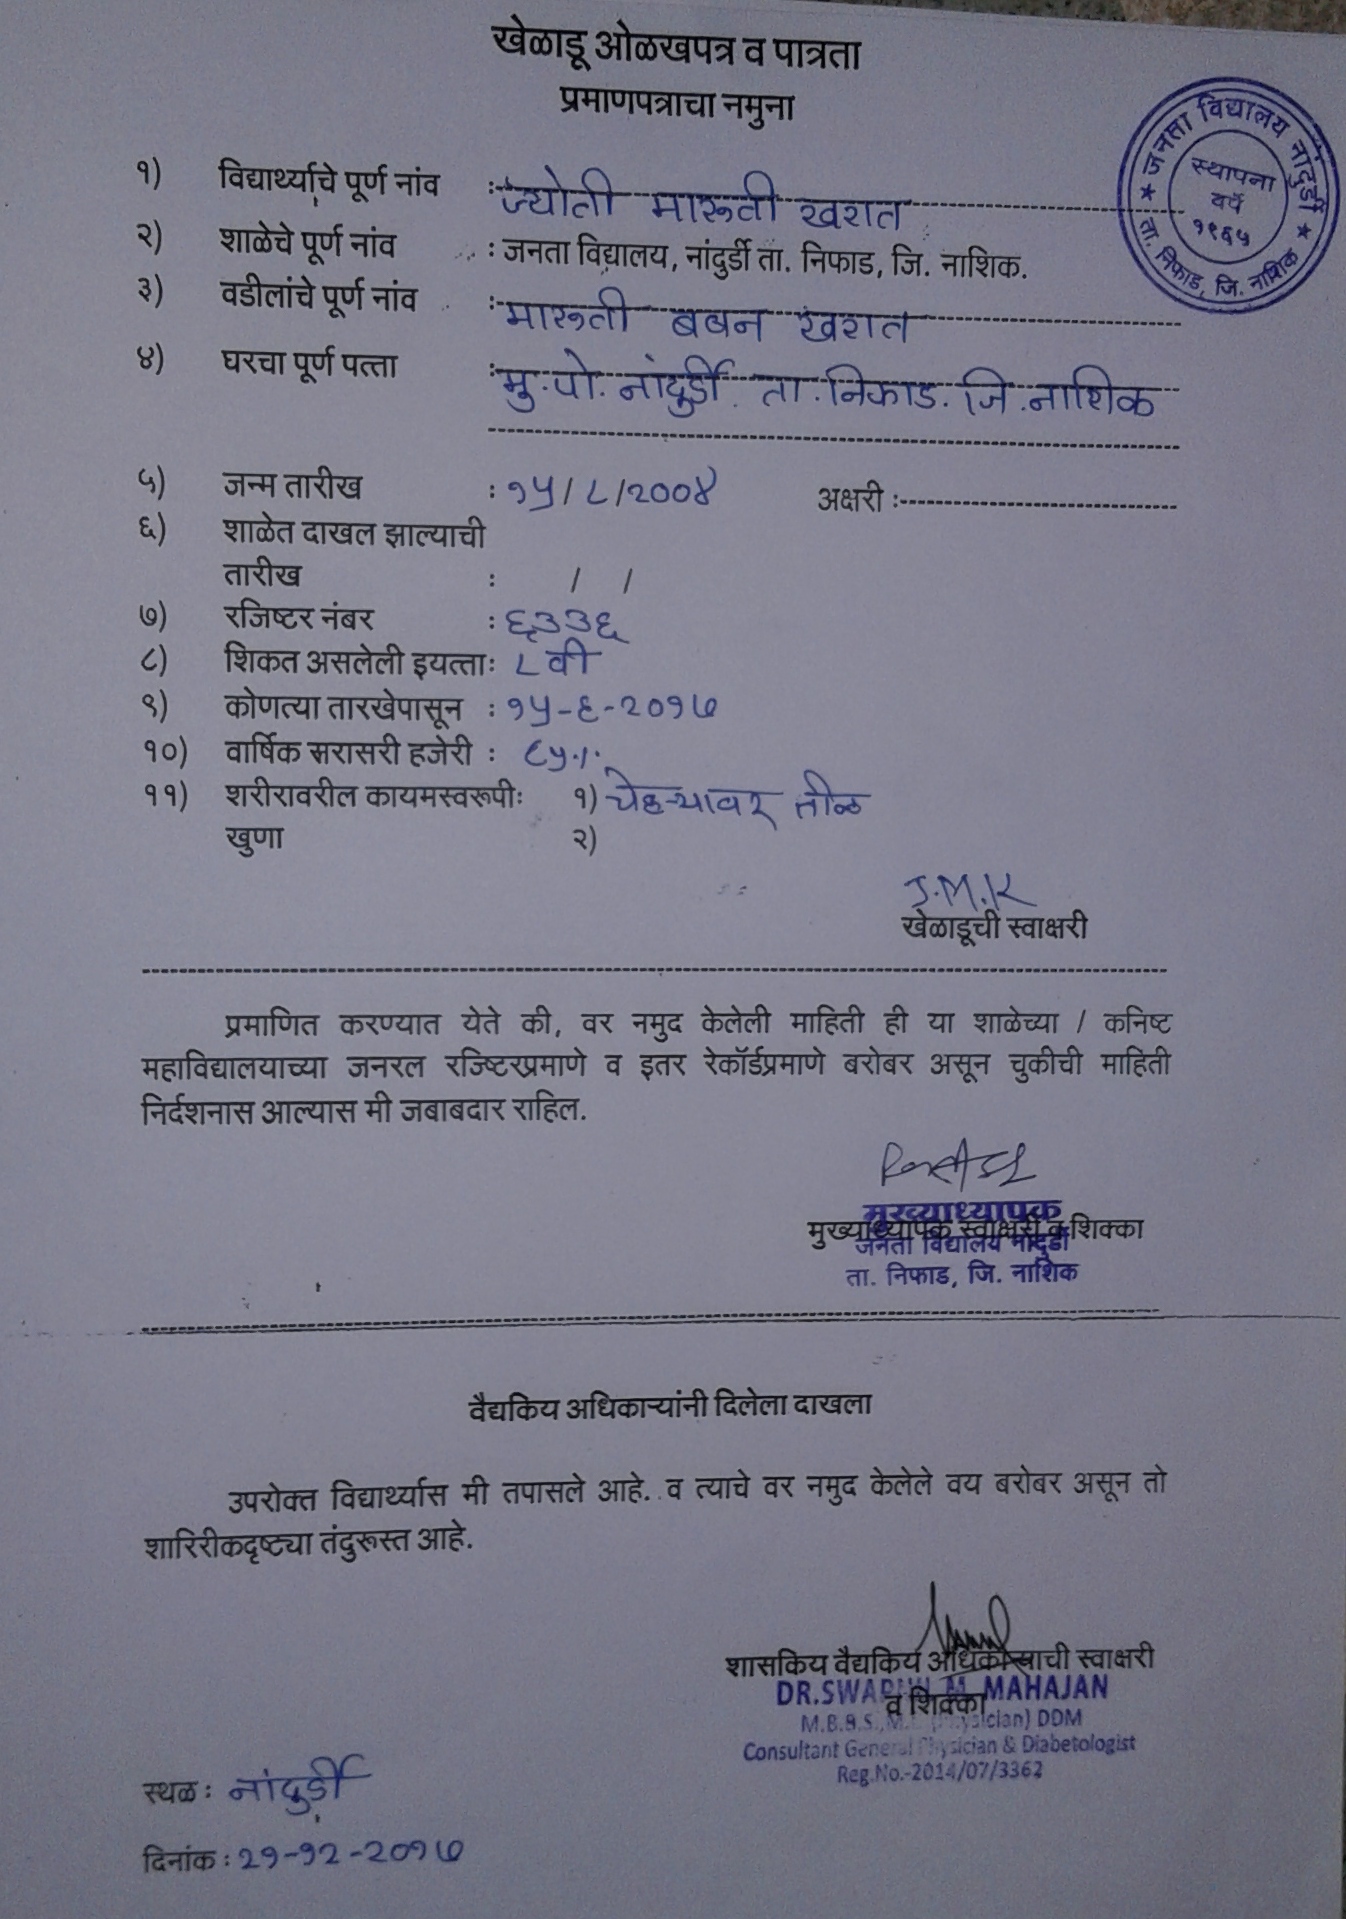 खेळाडू ओळखपत्र व पात्रता
प्रमाणपत्राचा नमुना
★ जनता विद्यालय नांदुर्डी ★ ता. निफाड, जि. नाशिक
स्थापना
वर्षे
१९६५
१) विद्यार्थ्याचे पूर्ण नांव : ज्योती मारूती खरात
२) शाळेचे पूर्ण नांव : जनता विद्यालय, नांदुर्डी ता. निफाड, जि. नाशिक.
३) वडीलांचे पूर्ण नांव : मारूती बबन खरात
४) घरचा पूर्ण पत्ता : मु.पो. नांदुर्डी. ता.निफाड. जि.नाशिक
५) जन्म तारीख : १५/८/२००४ अक्षरी :
६) शाळेत दाखल झाल्याची
तारीख : / /
७) रजिष्टर नंबर : ६३३६
८) शिकत असलेली इयत्ताः ८ वी
९) कोणत्या तारखेपासून : १५-६-२०१७
१०) वार्षिक सरासरी हजेरी : ८५.।.
११) शरीरावरील कायमस्वरूपीः १) चेहऱ्यावर तीळ
खुणा २)
J.M.K
खेळाडूची स्वाक्षरी
प्रमाणित करण्यात येते की, वर नमुद केलेली माहिती ही या शाळेच्या / कनिष्ट
महाविद्यालयाच्या जनरल रज्टिरप्रमाणे व इतर रेकॉर्डप्रमाणे बरोबर असून चुकीची माहिती
निर्दशनास आल्यास मी जबाबदार राहिल.
मुख्याध्यापक
मुख्याध्यापक स्वाक्षरी व शिक्का
जनता विद्यालय नांदुर्डी
ता. निफाड, जि. नाशिक
वैद्यकिय अधिकाऱ्यांनी दिलेला दाखला
उपरोक्त विद्यार्थ्यास मी तपासले आहे. व त्याचे वर नमुद केलेले वय बरोबर असून तो
शारिरीकदृष्ट्या तंदुरूस्त आहे.
शासकिय वैद्यकिय अधिकाऱ्याची स्वाक्षरी
व शिक्का
DR.SWAPNIL M. MAHAJAN
M.B.B.S., (Physician) DDM
Consultant General Physician & Diabetologist
Reg.No.-2014/07/3362
स्थळ : नांदुर्डी
दिनांक : २१-१२-२०१७